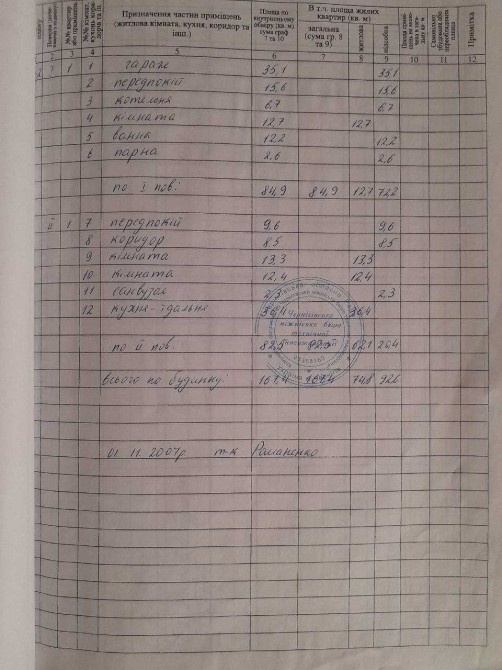 Призначення частини приміщень (житлова кімната, кухня, коридор та інш.)
Площа по внутрішньому обміру (кв. м) сума граф 7 та 10
В т.ч. площа житлових квартир (кв. м)
загальна (сума гр. 8 та 9)
житлова
підсобна
Примітка
2 3 4 5 6 7 8 9 10 11 12
1 1 гараж 35,1 35,1
2 передпокій 15,6 15,6
3 котельня 6,7 6,7
4 кімната 12,7 12,7
5 ванна 12,2 12,2
6 парна 2,6 2,6
по I пов: 84,9 84,9 12,7 72,2
ІІ 1 7 передпокій 9,6 9,6
8 коридор 8,5 8,5
9 кімната 13,3 13,3
10 кімната 12,4 12,4
11 санвузол 2,3 2,3
12 кухня-їдальня 36,4 36,4
по ІІ пов 82,5 82,5 62,1 20,4
Всього по будинку. 167,4 167,4 74,8 92,6
Чернігівське
міжміське бюро
технічної
інвентаризації
01 11 2007р т-к Романенко